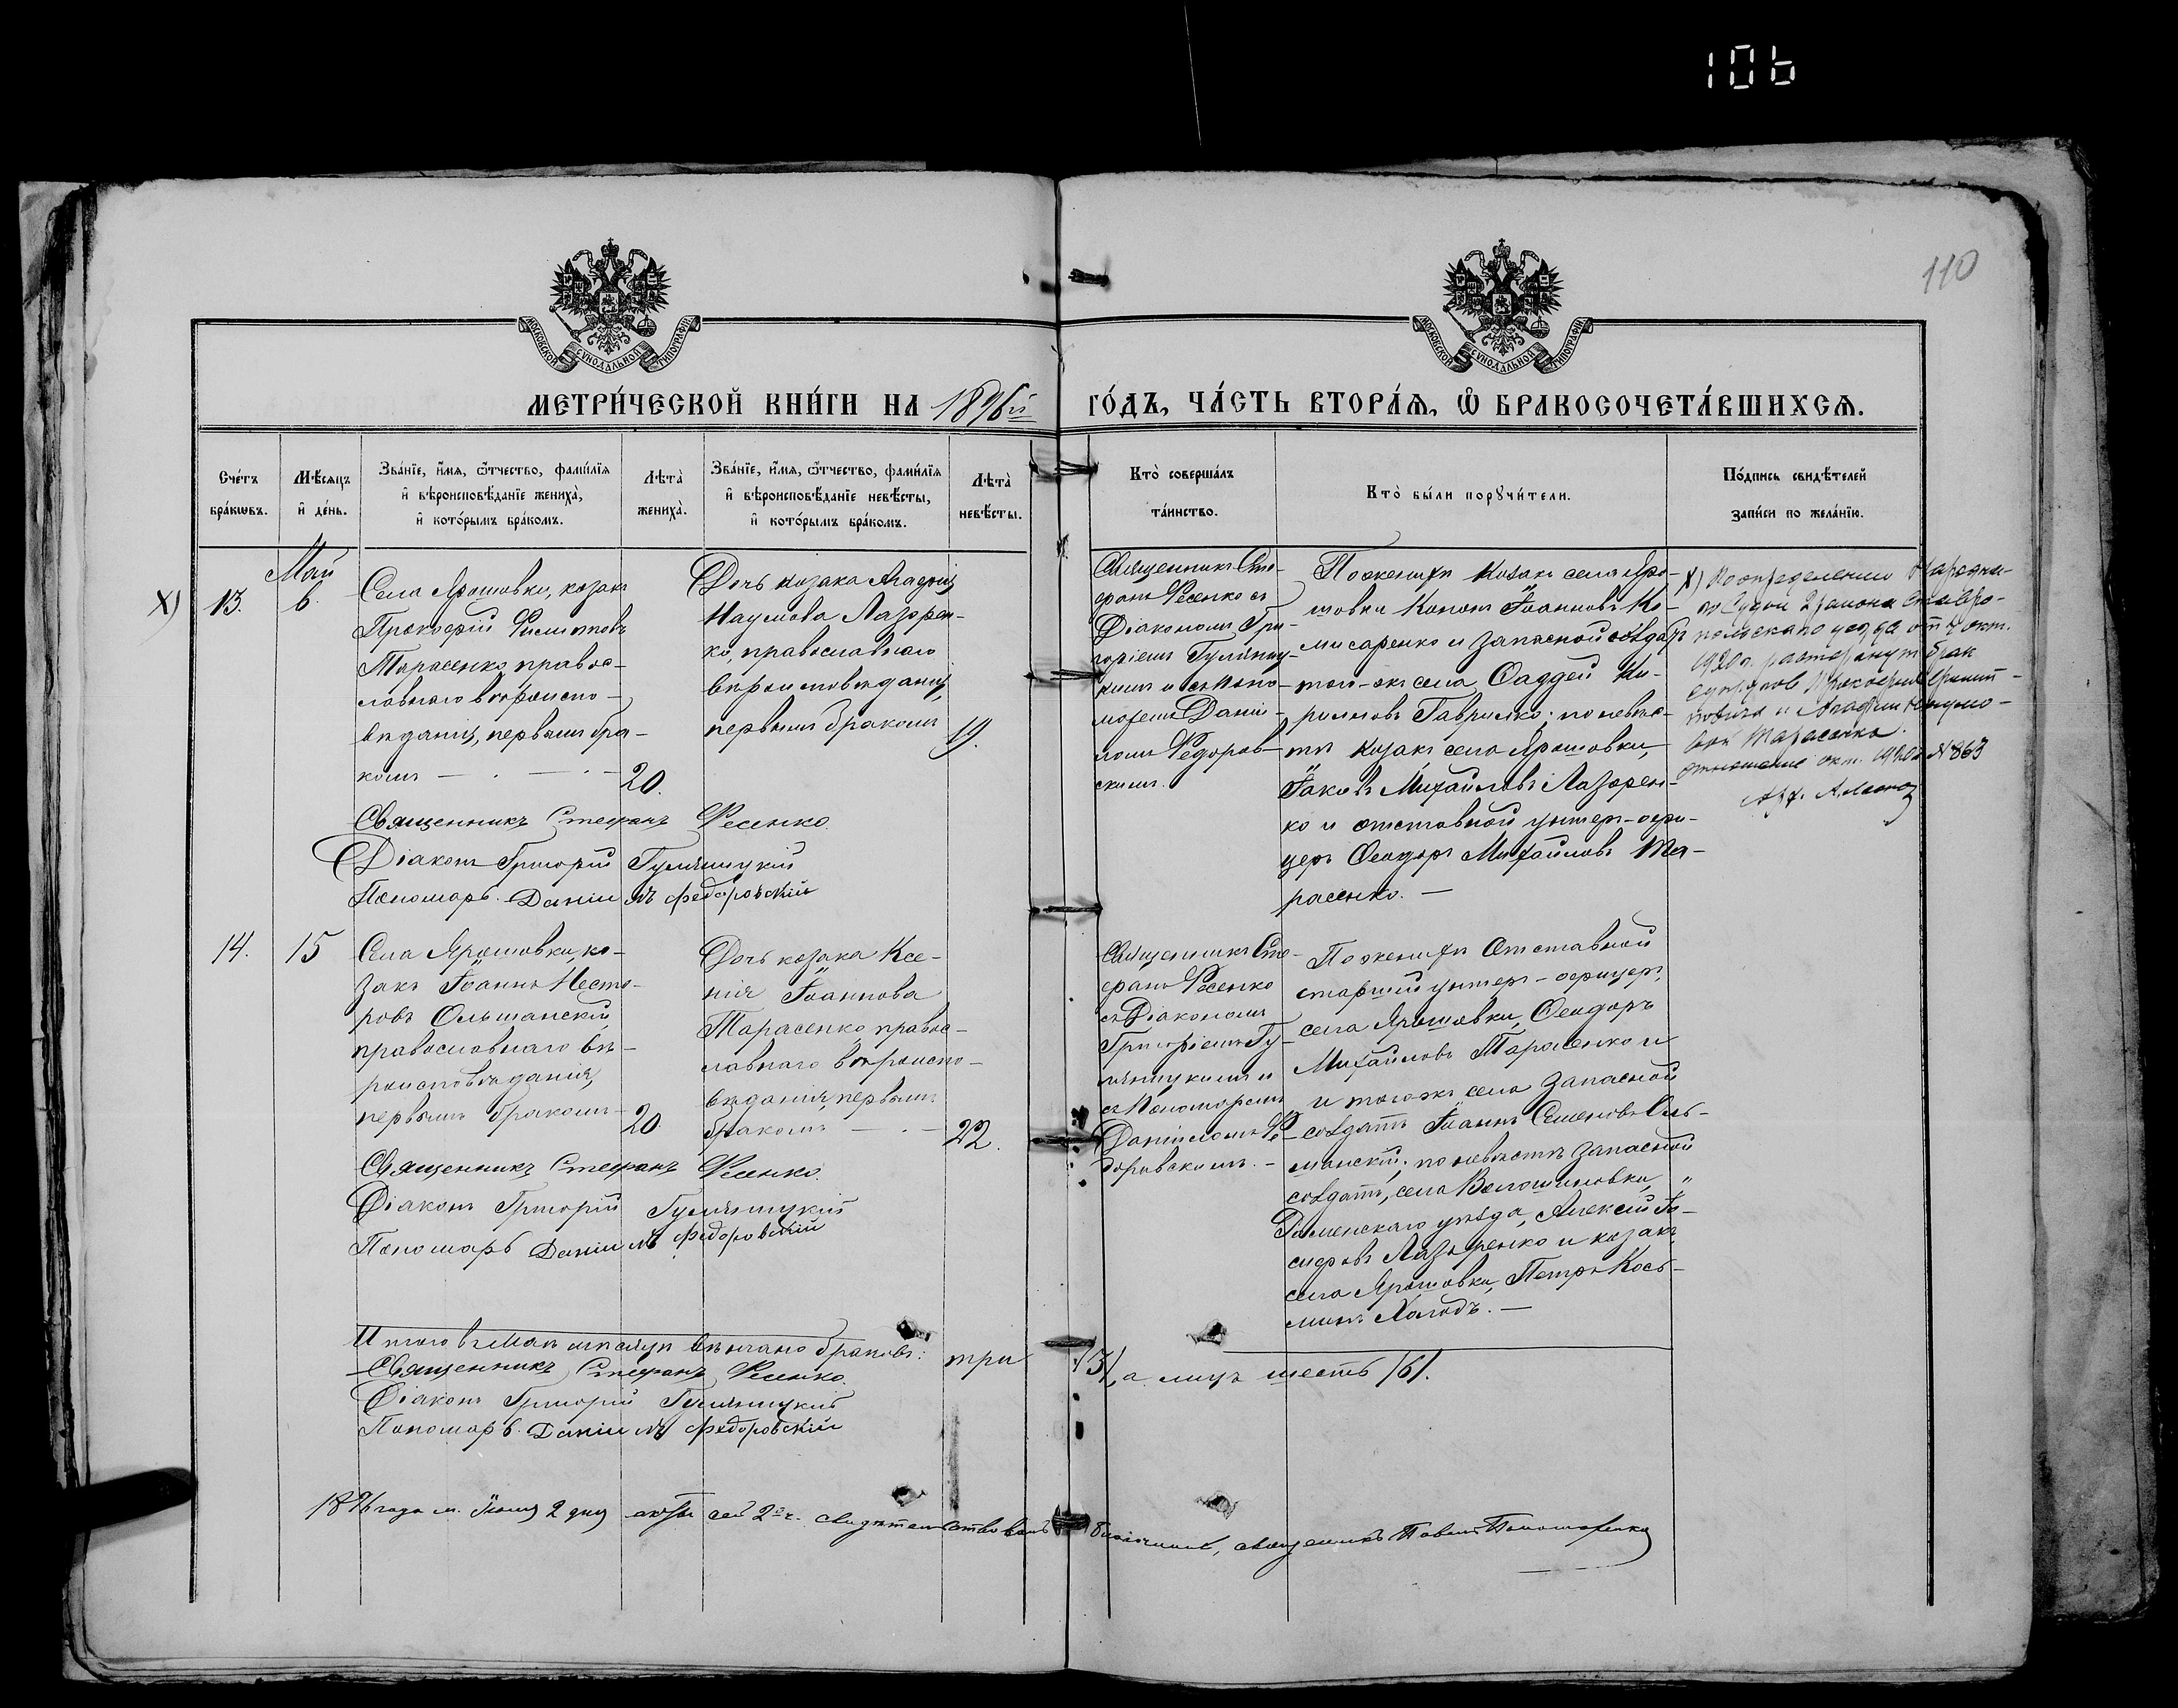 106
110
МОСКОВСКОЙ СУНОДАЛЬНОЙ ТИПОГРАФІИ
МОСКОВСКОЙ СУНОДАЛЬНОЙ ТИПОГРАФІИ
МЕТРИ́ЧЕСКОЙ КНИ́ГИ НА 1896й ГО́ДЪ, ЧА́СТЬ ВТОРА́Ѧ, Ѽ БРАКОСОЧЕТА́ВШИХСѦ.
Сче́тъ бра́кѡвъ.
Мѣ́сѧцъ и҆ де́нь.
Зва́нїе, и҆́мѧ, ѻ҆́тчество, фами́лїѧ
и҆ вѣроисповѣ́данїе жениха̀,
и҆ кото́рымъ бра́комъ.
Лѣта̀ жениха̀.
Зва́нїе, и҆́мѧ, ѻ҆́тчество, фами́лїѧ
и҆ вѣроисповѣ́данїе невѣ́сты,
и҆ кото́рымъ бра́комъ.
Лѣта̀ невѣ́сты.
Кто̀ соверша́лъ та́инство.
Кто̀ бы́ли порꙋчи́тели.
По́дпись свидѣ́телей
за́писи по жела́нїю.
Май
Х) 13. 6.
Села Ярошовки, козакъ
Прокофій Филиповъ
Тарасенко, правос-
лавнаго вѣроиспо-
вѣданія, первымъ бра-
комъ 20.
Дочь козака Агафія
Наумова Лазорен-
ко, православнаго
вѣроисповѣданія,
первымъ бракомъ 19.
Священникъ Сте-
фанъ Фесенко съ
Діакономъ Гри-
горіемъ Гуляниц-
кимъ и съ Поно-
маремъ Даніи-
ломъ Федоров-
скимъ.
По женихѣ козакъ села Яро-
шовки Кононъ Іоанновъ Ко-
мисаренко и запасной солдатъ
того-жъ села Фаддей Ки-
рилловъ Гаврилко; по невѣс-
тѣ козакъ села Ярошовки,
Іаковъ Михайловъ Лазорен-
ко и отставной унтеръ-офи-
церъ Феодоръ Михайловъ Та-
расенко.
Х) По определению Народна-
го Суда 2 района Ставро-
польскаго уезда от 7 окт.
1920 г. расторгнут брак
супругов Прокофия Филип-
повича и Агафии Наумо-
вой Тарасенко.
отношение окт. 1920 г. № 863
Священникъ Стефанъ Фесенко.
Діаконъ Григорій Гуляницкій
Пономарь Даніилъ Федоровскій
14. 15
Села Ярошовки, ко-
закъ Іоаннъ Несто-
ровъ Ольшанскій,
православнаго вѣ-
роисповѣданія,
первымъ бракомъ 20.
Дочь козака Ксе-
нія Іоаннова
Тарасенко, правос-
лавнаго вѣроиспо-
вѣданія, первымъ
бракомъ 22.
Священникъ Сте-
фанъ Фесенко
съ Діакономъ
Григоріемъ Гу-
ляницкимъ и
съ Пономаремъ
Даніиломъ Фе-
доровскимъ.
По женихѣ Отставной
старшій унтеръ-офицеръ,
села Ярошовки, Феодоръ
Михайловъ Тарасенко и
и того-жъ села запасной
солдатъ Іоаннъ Семеновъ Оль-
шанскій; по невѣстѣ запасной
солдатъ, села Волошиновки,
Роменскаго уѣзда, Алексій Іо-
сифовъ Лазоренко и козакъ
села Ярошовки, Петръ Кось-
минъ Холодъ.
Священникъ Стефанъ Фесенко.
Діаконъ Григорій Гуляницкій
Пономарь Даніилъ Федоровскій
Итого въ Маѣ мѣсяцѣ вѣнчано браковъ: три /3/, а лицъ шесть /6/.
Священникъ Стефанъ Фесенко.
Діаконъ Григорій Гуляницкій
Пономарь Даніилъ Федоровскій
1896 года м. Іюня 2 дня сей 2й ч. свидѣтельствовалъ Благочинный, священникъ Павелъ Пономаренко